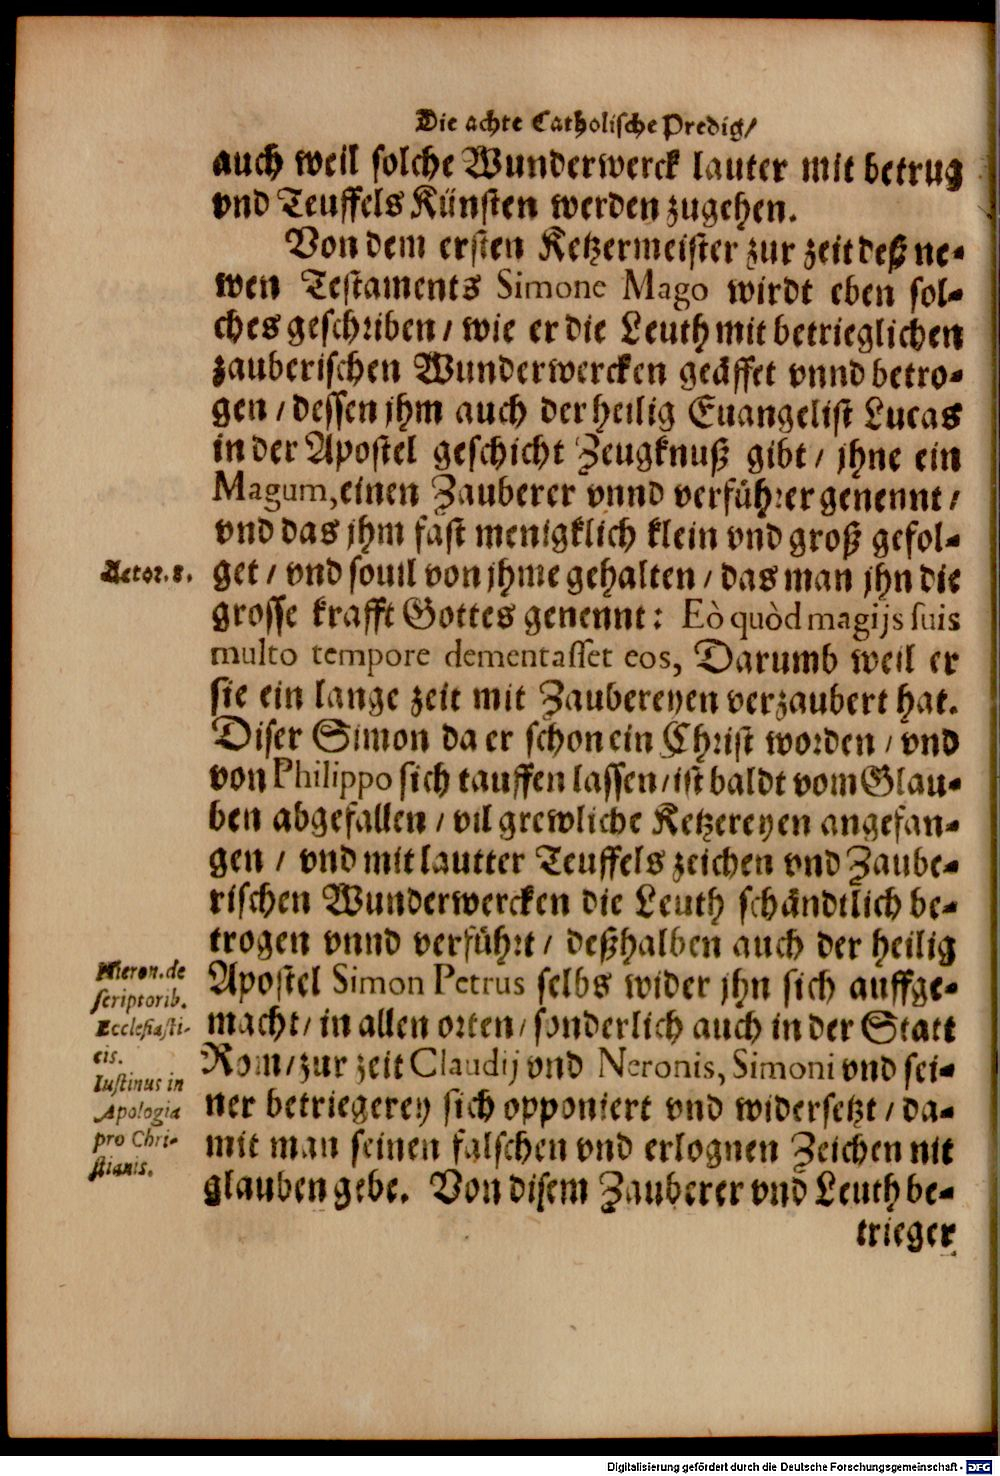 Die achte Catholische Predig/
auch weil solche Wunderwerck lauter mit betrug
vnd Teuffels Künsten werden zugehen.
Von dem ersten Ketzermeister zur zeit deß ne-
wen Testaments Simone Mago wirdt eben sol-
ches geschriben/ wie er die Leuth mit betrieglichen
zauberischen Wunderwercken geäffet vnnd betro-
gen/ dessen jhm auch der heilig Euangelist Lucas
in der Apostel geschicht Zeugknuß gibt/ jhne ein
Magum, einen Zauberer vnnd verführer genennt/
vnd das jhm fast menigklich klein vnd groß gefol-
Actor. 8.
get/ vnd souil von jhme gehalten/ das man jhn die
grosse krafft Gottes genennt: Eò quòd magijs suis
multo tempore dementasset eos, Darumb weil er
sie ein lange zeit mit Zaubereyen verzaubert hat.
Diser Simon da er schon ein Christ worden/ vnd
von Philippo sich tauffen lassen/ ist baldt vom Glau-
ben abgefallen/ vil grewliche Ketzereyen angefan-
gen/ vnd mit lautter Teuffels zeichen vnd Zaube-
rischen Wunderwercken die Leuth schändtlich be-
trogen vnnd verführt/ deßhalben auch der heilig
Apostel Simon Petrus selbs wider jhn sich auffge-
macht/ in allen orten/ sonderlich auch in der Statt
Rom/ zur zeit Claudij vnd Neronis, Simoni vnd sei-
ner betriegerey sich opponiert vnd widersetzt/ da-
mit man seinen falschen vnd erlognen Zeichen nit
glauben gebe. Von disem Zauberer vnd Leuth be-
trieger
Hieron. de
scriptorib.
Ecclesiasti-
cis.
Iustinus in
Apologia
pro Chri-
stianis.
Digitalisierung gefördert durch die Deutsche Forschungsgemeinschaft - DFG